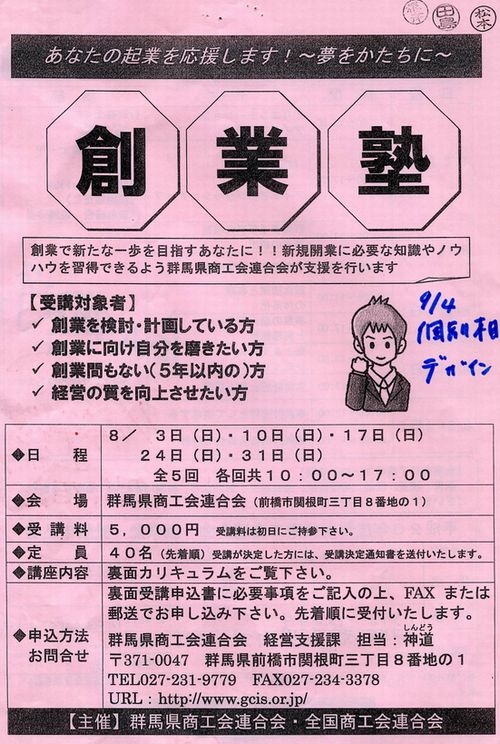 田島
松本
あなたの起業を応援します！～夢をかたちに～
創業塾
創業で新たな一歩を目指すあなたに！！新規開業に必要な知識やノウ
ハウを習得できるよう群馬県商工会連合会が支援を行います
【受講対象者】
✓ 創業を検討・計画している方
✓ 創業に向け自分を磨きたい方
✓ 創業間もない（５年以内の）方
✓ 経営の質を向上させたい方
9/4
個別相
デザイン
◆日　程
８／　３日（日）・１０日（日）・１７日（日）
２４日（日）・３１日（日）
全５回　各回共１０：００～１７：００
◆会　場　群馬県商工会連合会（前橋市関根町三丁目８番地の１）
◆受 講 料　５，０００円　受講料は初日にご持参下さい。
◆定　員　４０名（先着順）受講が決定した方には、受講決定通知書を送付いたします。
◆講座内容　裏面カリキュラムをご覧下さい。
◆申込方法
お問合せ
裏面受講申込書に必要事項をご記入の上、FAX または
郵送でお申し込み下さい。先着順に受付いたします。
しんどう
群馬県商工会連合会　経営支援課　担当：神道
〒371-0047　群馬県前橋市関根町三丁目８番地の１
TEL027-231-9779　FAX027-234-3378
URL：http://www.gcis.or.jp/
【主催】群馬県商工会連合会・全国商工会連合会